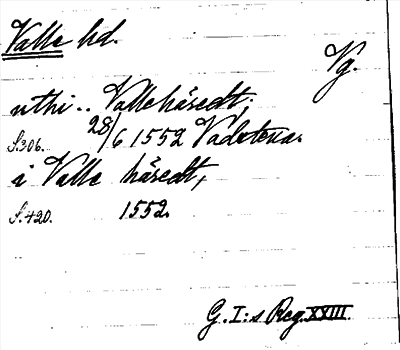 Valle hd.
Vg.
uthi .. Vallehäredt,
S. 306. 28/6 1552 Vadstena.
i Valle häredt,
S. 420. 1552.
G. I:s Reg. XXIII.